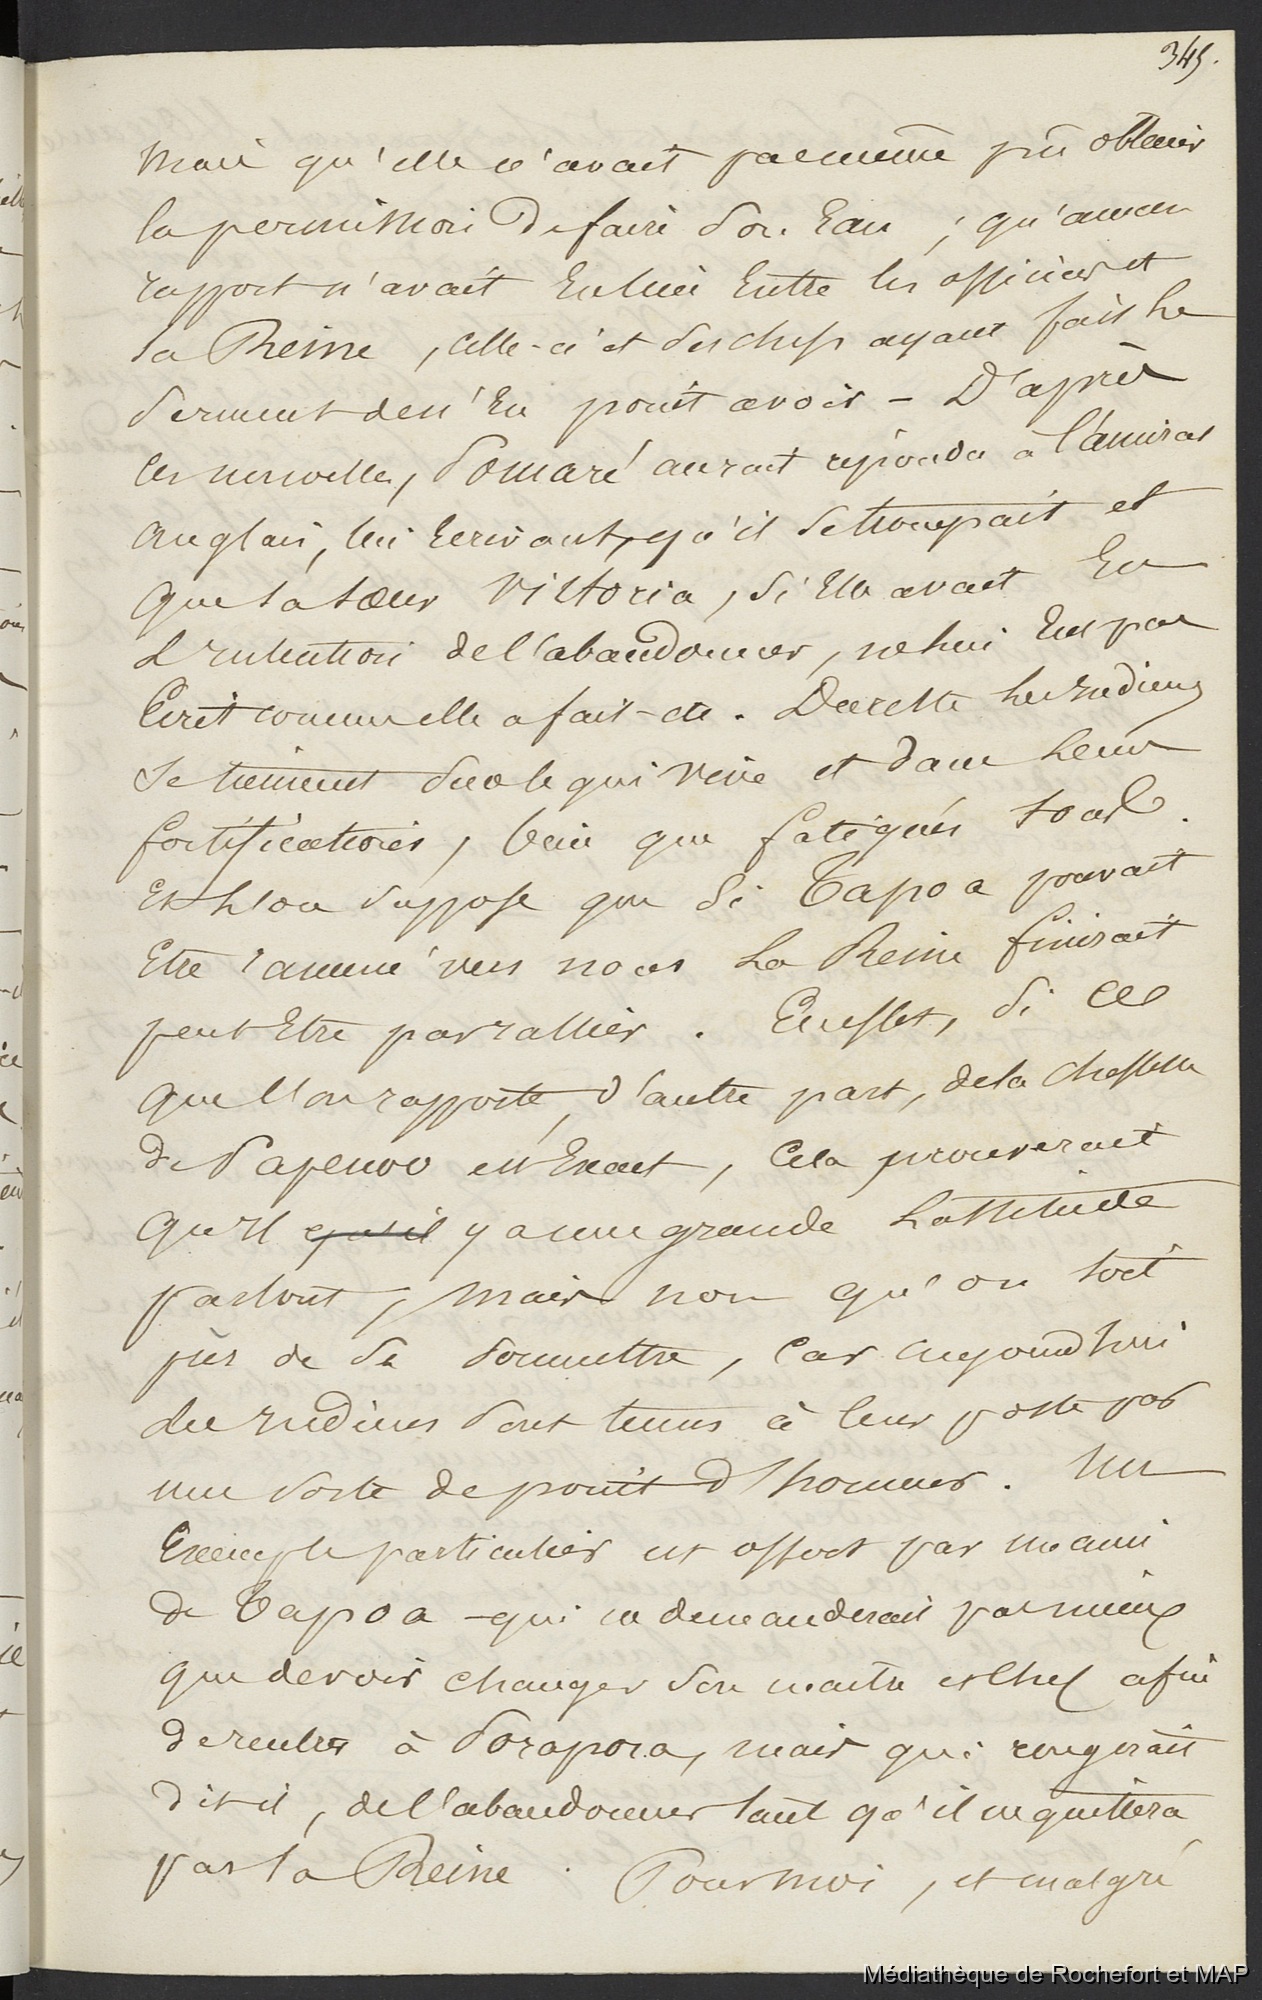 345.
Mais qu'elle n'avait pas même pû obtenir
la permission de faire son Eau ; qu'aucun
rapport n'avait Eu lieu Entre les officiers et
la Reine, celle-ci et ses chefs ayant fait le
serment de n'En point avoir – D'après
les nouvelles, Pomaré aurait répondu à l'amiral
anglais, lui Ecrivant, qu'il se trompait et
que sa sœur Victoria, si Elle avait Eu
l'Intention de l'abandonner, ne lui Eut pas
Ecrit comme elle a fait - etc. Du reste les Indiens
se tiennent sur le qui vive et dans leurs
fortifications, bien que fatigués tous.
Et l'on suppose que si Tapoa pouvait
Etre ramené vers nous la Reine finirait
peut Etre par rallier. En effet, si ce
que l'on rapporte, d'autre part, de la cheffesse
de Papenoo est Exact, cela prouverait
qu'Il qu'il y a une grande lassitude
partout, mais non qu'on soit
près de se soumettre, car aujourd'hui
des Indiens sont tenus à leur poste par
une sorte de point d'honneur. Un
Exemple particulier est offert par un ami
de Tapoa - qui ne demanderait pas mieux
que de voir changer son maitre et chef afin
de rentrer à Borapora, mais qui rougirait
dit-il, de l'abandonner tant qu'il ne quittera
pas la Reine. Pour moi, et malgré
Médiathèque de Rochefort et MAP